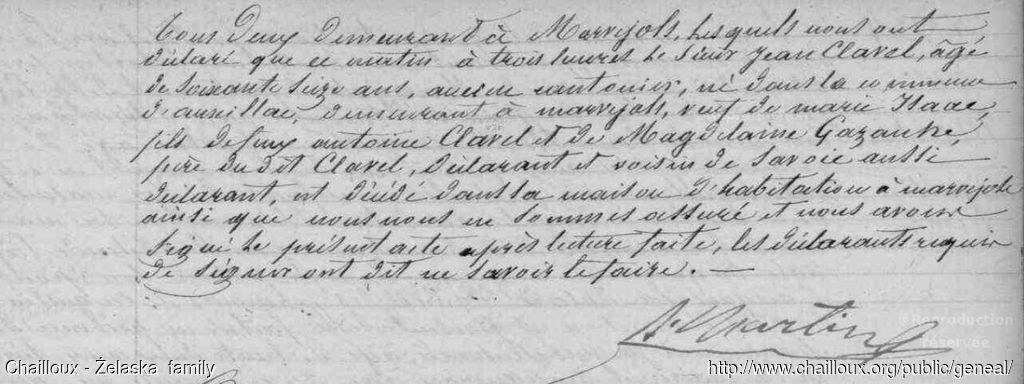 tous deux demeurant à Marvejols, lesquels nous ont
déclaré que ce matin à trois heures le sieur Jean Clavel, âgé
de soixante seize ans, ancien cantonier, né dans la commune
demeurant à marvejols, veuf de marie Isaac,
fils de feux antoine Clavel et de Magdelaine
père du dit Clavel, déclarant et voisin de Savoie aussi
déclarant, est décédé dans la maison d'habitation à marvejols
ainsi que nous nous en sommes assuré et nous avons
signé le présent acte après lecture faite, les déclarants requis
de signer ont dit ne savoir le faire. —
Martin
© Reproduction
réservée
Chailloux - Żelaska family
http://www.chailloux.org/public/geneal/